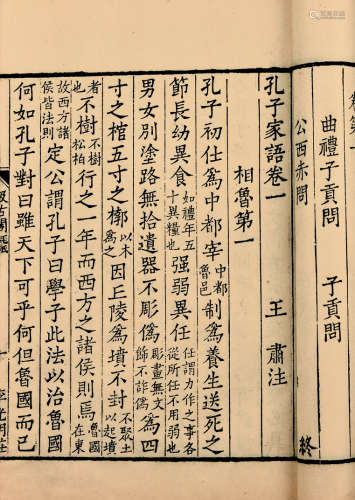 卷第一
曲禮子貢問　子貢問
公西赤問
終
孔子家語卷一
王肅注
相魯第一
孔子初仕爲中都宰中都魯邑制爲養生送死之
節長幼異食如禮年五十異糧也強弱異任任謂力作之事各從所任不用弱也
男女別塗路無拾遺器不彫僞彫畫無文飾不詐僞爲四
寸之棺五寸之椁以木爲之因丘陵爲墳不封不聚土以起墳
者也不樹不樹松柏行之一年而西方之諸侯則焉魯國在東故西方諸
侯皆法則定公謂孔子曰學子此法以治魯國
何如孔子對曰雖天下可乎何但魯國而已